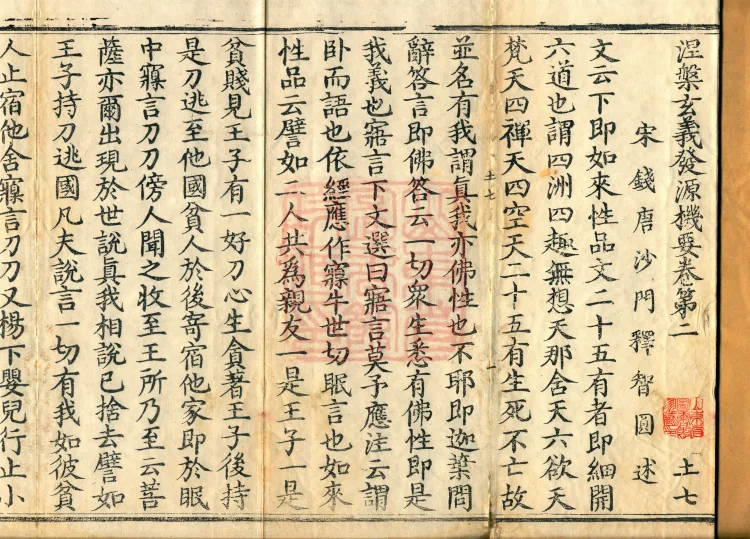 涅槃玄義發源機要卷第二
土七
宋錢唐沙門釋智圓述
文云下即如來性品文二十五有者即細開
六道也謂四洲四趣無想天那舍天六欲天
梵天四禪天四空天二十五有生死不亡故
土七
並名有我謂真我亦佛性也不耶即迦葉問
辭答言即佛答云一切衆生悉有佛性即是
我義也寤言下文選曰寤言莫予應注云謂
卧而語也依經應作寱牛世切眠言也如來
性品云譬如二人共為親友一是王子一是
貧賤見王子有一好刀心生貪著王子後持
是刀逃至他國貧人於後寄宿他家即於眠
中寱言刀刀傍人聞之收至王所乃至云菩
薩亦爾出現於世說真我相說已捨去譬如
王子持刀逃國凡夫說言一切有我如彼貧
人止宿他舍寱言刀刀又楊下嬰兒行止小